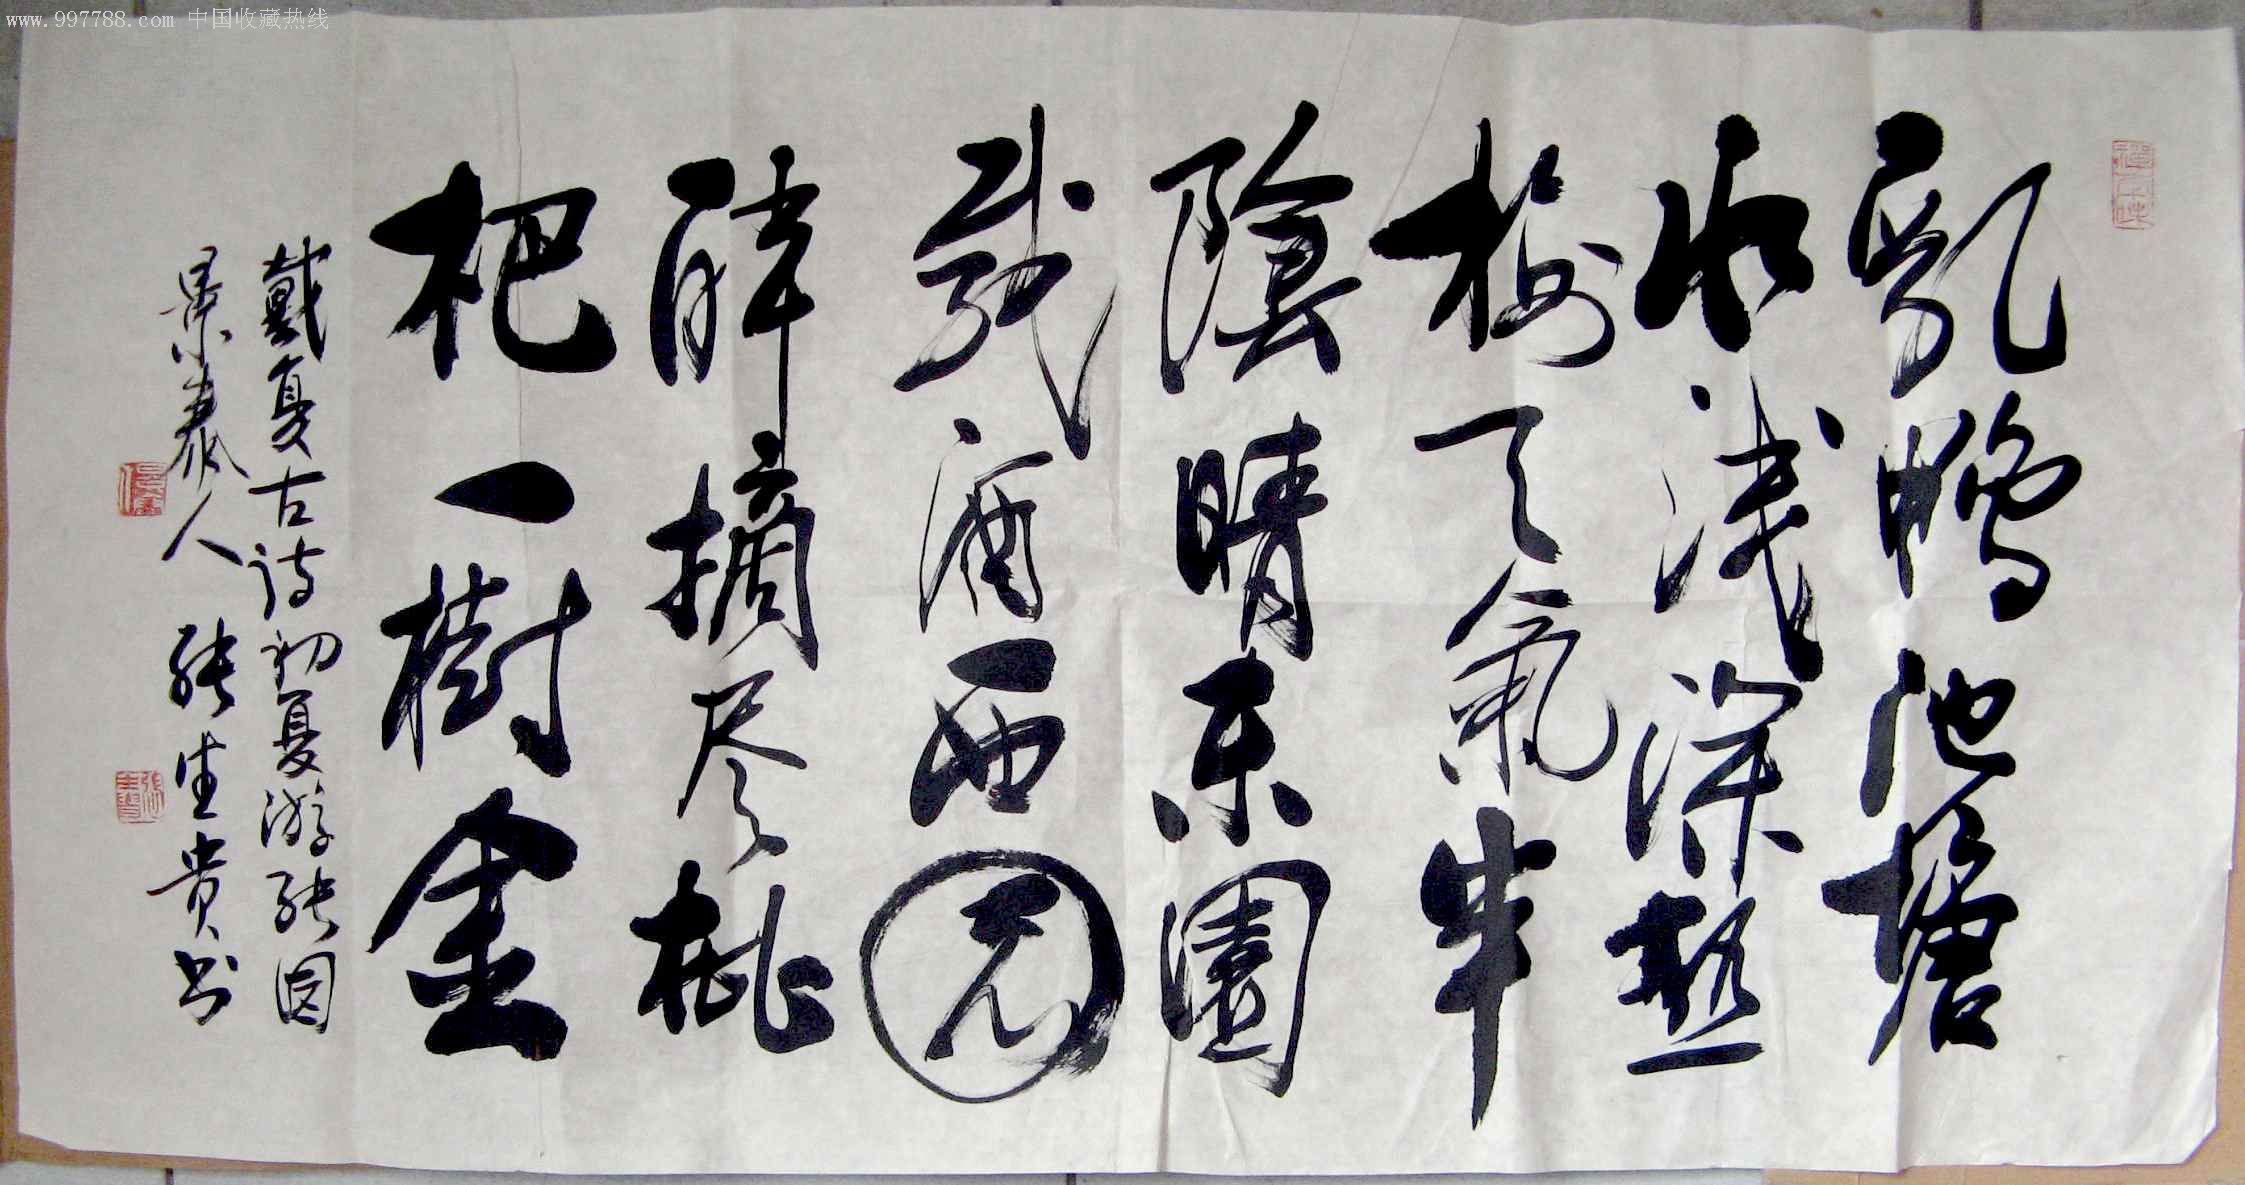 www.997788.com 中国收藏热线
乳鸭池塘
水浅深熟
梅天氣半
陰晴东園
载酒西园
醉摘尽枇
杷一樹金
戴复古诗初夏游张园
景泰人张生贵书